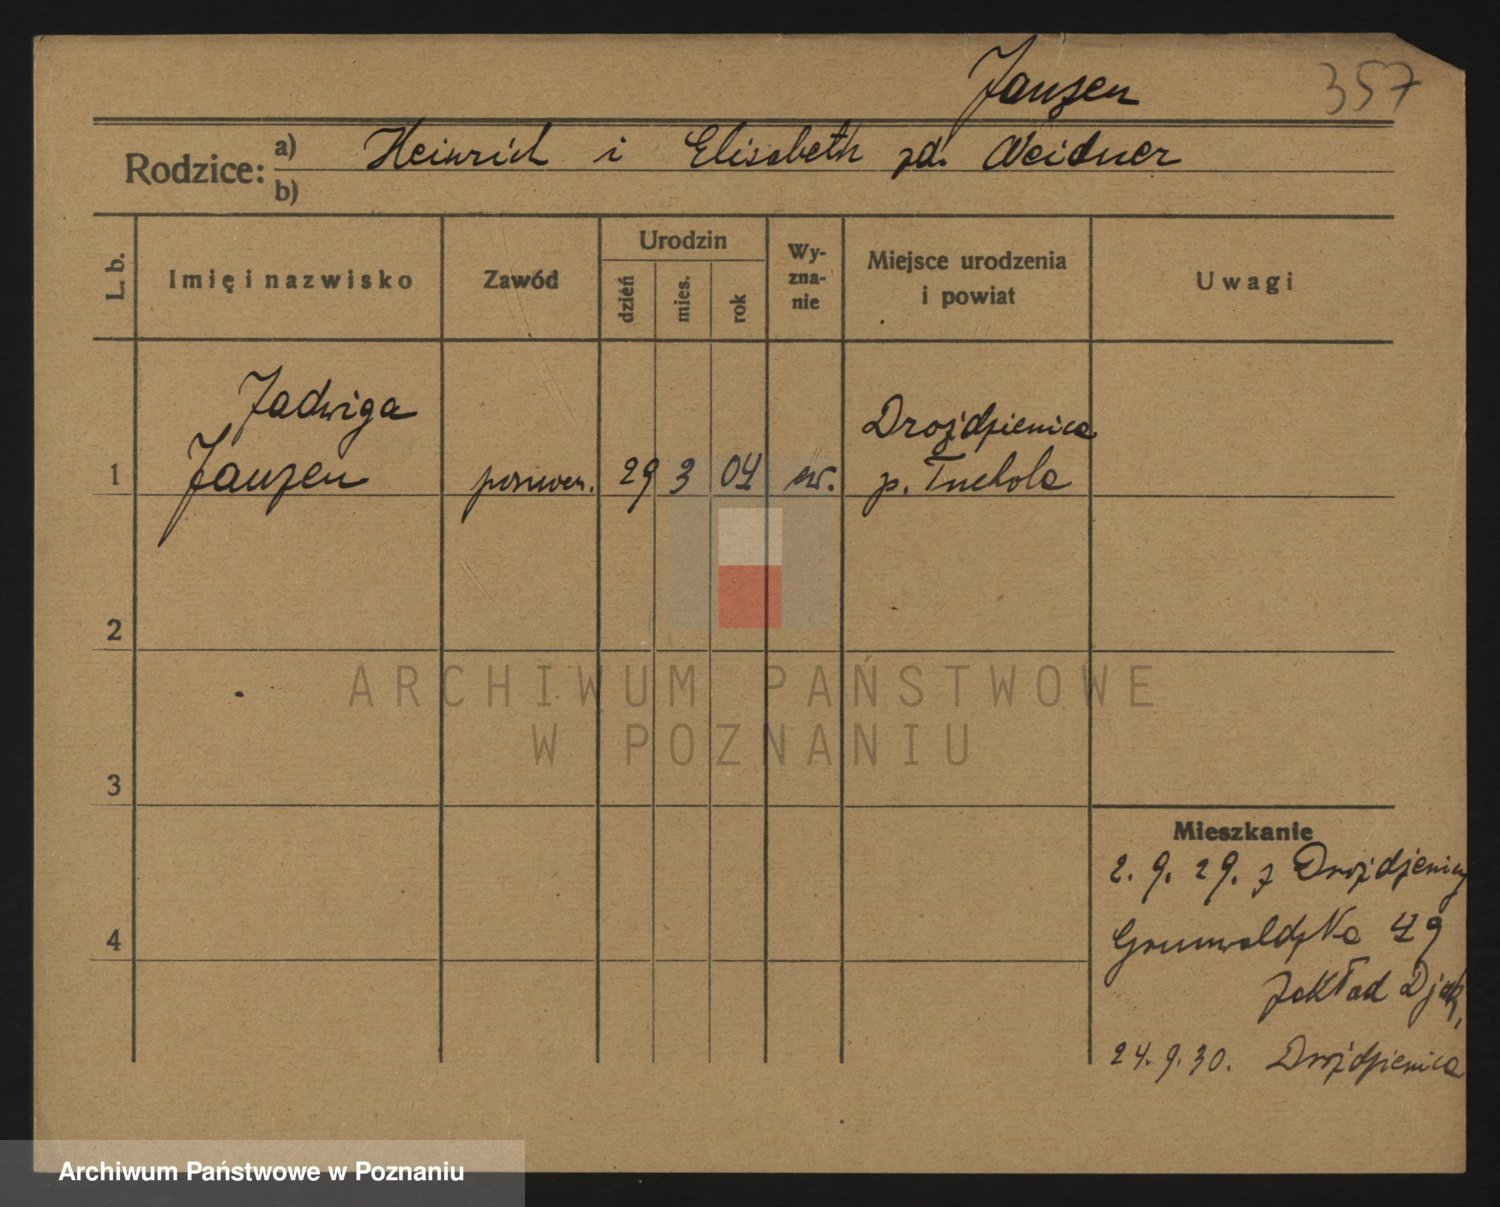 Janzen
357
Rodzice:
a) Heinrich i Elisabeth zd. Weidner
b)
L. b.
Imię i nazwisko
Zawód
Urodzin
dzień
mies.
rok
Wy-
zna-
nie
Miejsce urodzenia
i powiat
Uwagi
Jadwiga
Janzen
29 3 04
Drożdzienica
p. Tuchola
1
2
3
4
Mieszkanie
2. 9. 29. z Drożdzienicy
Grunwaldzka 49
Zakład Djak.
24. 9. 30. Drożdzienica
ARCHIWUM PAŃSTWOWE
W POZNANIU
Archiwum Państwowe w Poznaniu